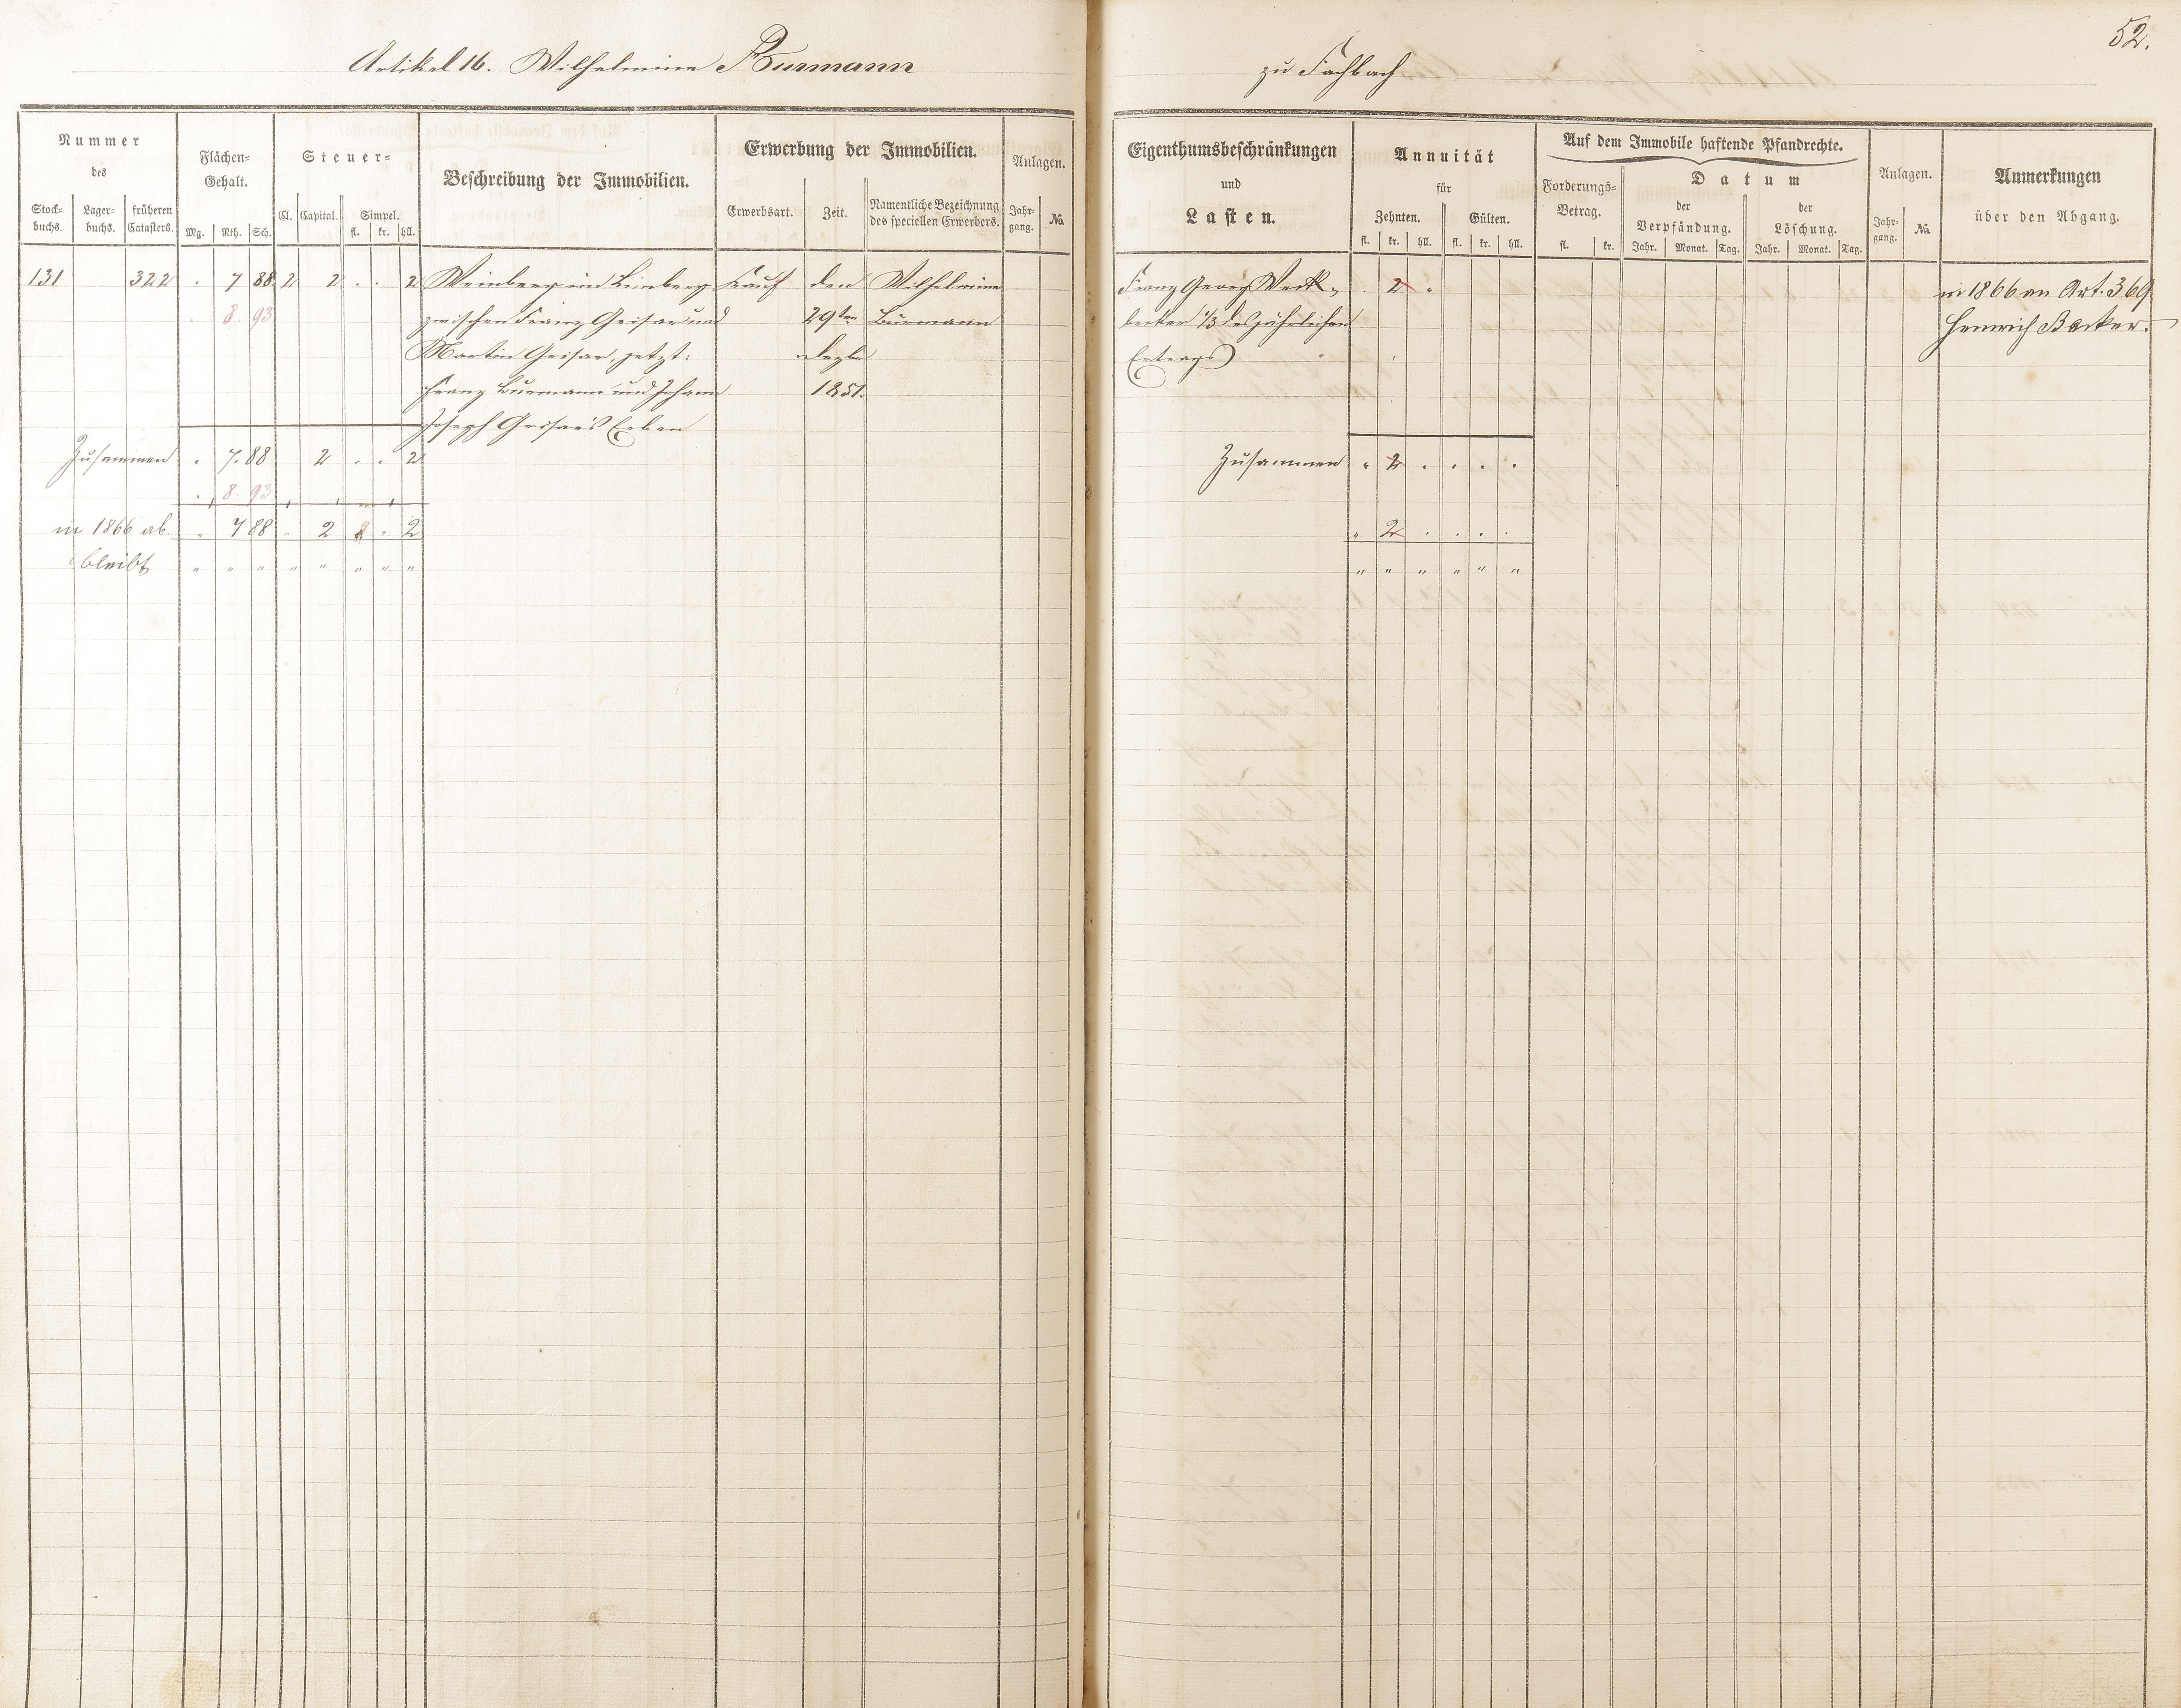 52.
Artikel 16. Wilhelmine Burmann
zu Fachbach
Nummer
des
Stock-
buchs.
Lager-
buchs.
früheren
Catasters.
Flächen-
Gehalt.
Mg. Rth. Sch.
Steuer-
Cl. Capital. Simpel.
fl. kr. hll.
Beschreibung der Immobilien.
Erwerbung der Immobilien.
Erwerbsart. Zeit.
Namentliche Bezeichnung
des speciellen Erwerbers.
Anlagen.
Jahr-
gang. No.
Eigenthumsbeschränkungen
und
Lasten.
Annuität
für
Zehnten. Gülten.
fl. kr. hll. fl. kr. hll.
Auf dem Immobile haftende Pfandrechte.
Forderungs-
Betrag.
fl. kr.
Datum
der
Verpfändung.
Jahr. Monat. Tag.
der
Löschung.
Jahr. Monat. Tag.
Anlagen.
Jahr-
gang. No.
Anmerkungen
über den Abgang.
131 322 . 7 88 2 2 . . 2 Weinberg im Limberg Kauf den Wilhelmine
8. 93 zwischen Franz Geisar und 29ten Burmann
Martin Geisar, jetzt: Dezbr
Franz Burmann und Johann 1851.
Joseph Geisar's Erben
Zusammen . 7. 88 2 . . 2
. 8. 93
in 1866 ab. . 7 88 . 2 . 2
bleibt " " " " " " " "
Franz Georg Weck- . 2 . in 1866 an Art. 369
becker 1/3 des jährlichen Heinrich Backer.
Ertrags
Zusammen . 2 . . . .
" 2 . . . .
" " " " " "